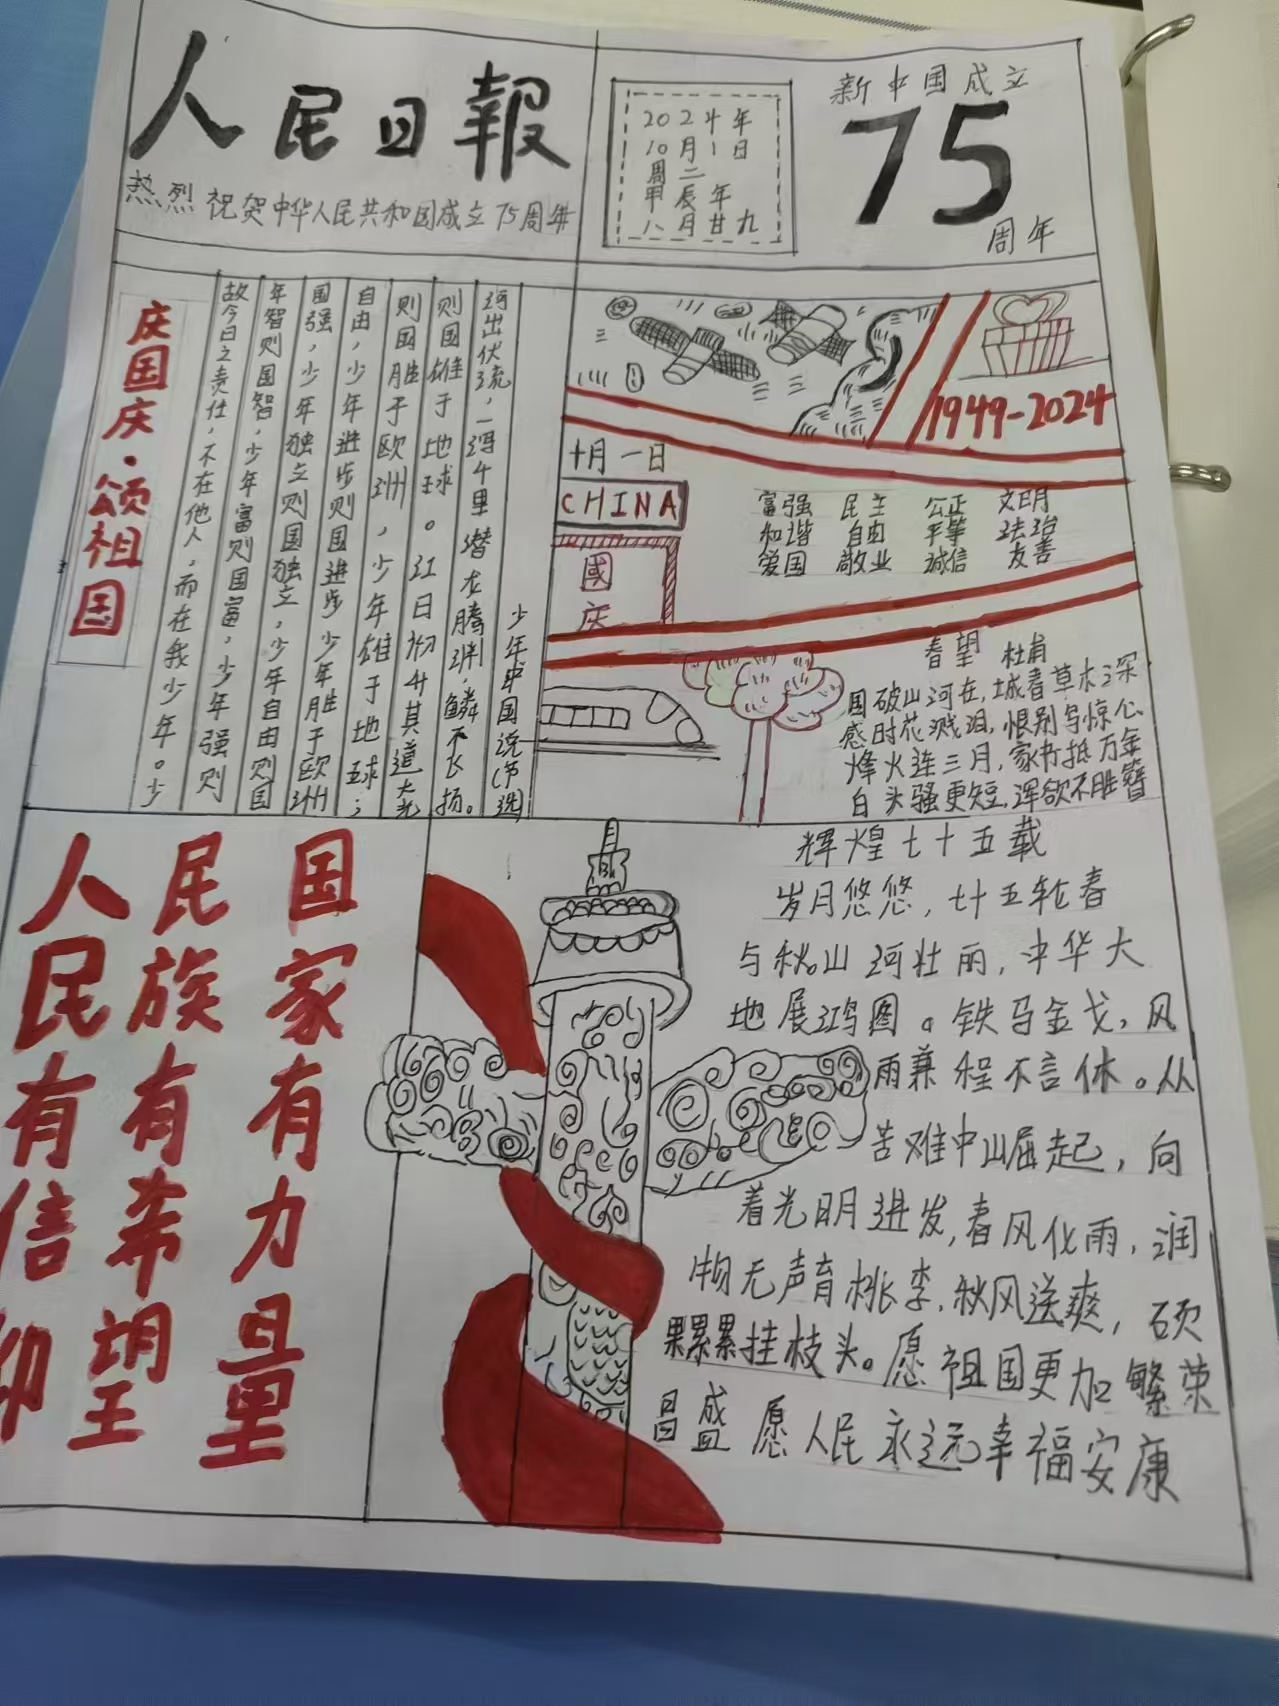 人民日報
热烈祝贺中华人民共和国成立75周年
2024年
10月1日
周二
甲辰年
八月廿九
新中国成立
75
周年
庆国庆·颂祖国
故今日之责任，不在他人，而在我少年。少
年智则国智，少年富则国富，少年强则
国强，少年独立则国独立，少年自由则国
自由，少年进步则国进步少年胜于欧洲
则国胜于欧洲，少年雄于地球；
则国雄于地球。红日初升其道大光
河出伏流，一泻千里潜龙腾渊，鳞爪飞扬。
少年中国说（节选）
1949-2024
十月一日
CHINA
國
庆
富强 民主 公正 文明
和谐 自由 平等 法治
爱国 敬业 诚信 友善
春望 杜甫
国破山河在，城春草木深
感时花溅泪，恨别鸟惊心
烽火连三月，家书抵万金
白头骚更短，浑欲不胜簪
人民有信仰
民族有希望
国家有力量
辉煌七十五载
岁月悠悠，七十五轮春
与秋山河壮丽，中华大
地展鸿图。铁马金戈，风
雨兼程不言休。从
苦难中崛起，向
着光明进发，春风化雨，润
物无声育桃李，秋风送爽，硕
果累累挂枝头。愿祖国更加繁荣
昌盛 愿人民永远幸福安康